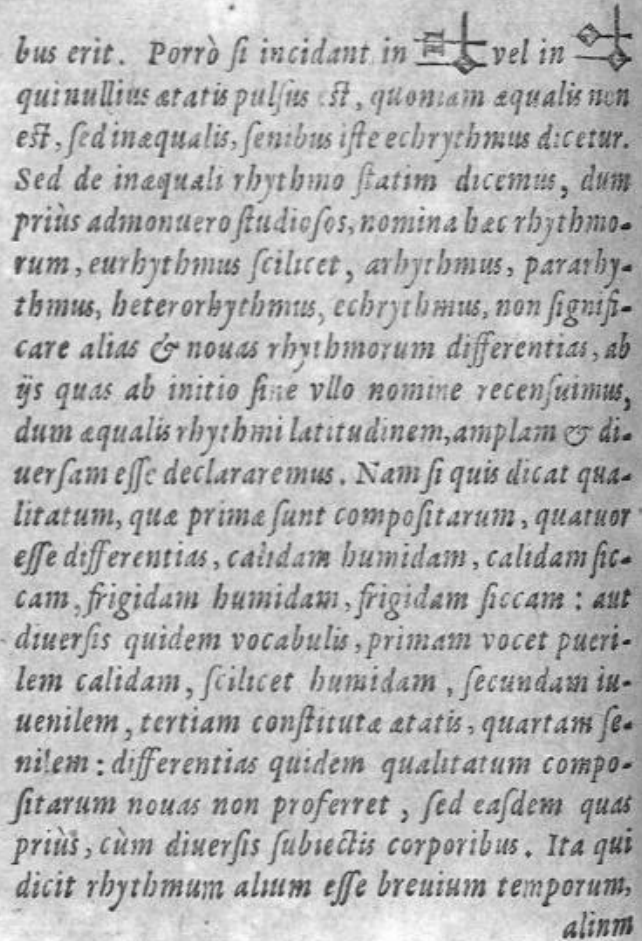 bus erit. Porrò ſi incidant in vel in
qui nullius ætatis pulſus eſt, quoniam æqualis non
eſt, ſed inæqualis, ſenibus iſte echrythmus dicetur.
Sed de inæquali rhythmo ſtatim dicemus, dum
priùs admonuero ſtudioſos, nomina hæc rhythmo-
rum, eurhythmus ſcilicet, arhythmus, pararhy-
thmus, heterorhythmus, echrythmus, non ſignifi-
care alias & nouas rhythmorum differentias, ab
ijs quas ab initio ſine vllo nomine recenſuimus,
dum æqualis rhythmi latitudinem, amplam & di-
uerſam eſſe declararemus. Nam ſi quis dicat qua-
litatum, quæ primæ ſunt compoſitarum, quatuor
eſſe differentias, calidam humidam, calidam ſic-
cam, frigidam humidam, frigidam ſiccam: aut
diuerſis quidem vocabulis, primam vocet pueri-
lem calidam, ſcilicet humidam, ſecundam iu-
uenilem, tertiam conſtitutæ ætatis, quartam ſe-
nilem: differentias quidem qualitatum compo-
ſitarum nouas non proferret, ſed eaſdem quas
priùs, cùm diuerſis ſubiectis corporibus. Ita qui
dicit rhythmum alium eſſe breuium temporum,
alinm